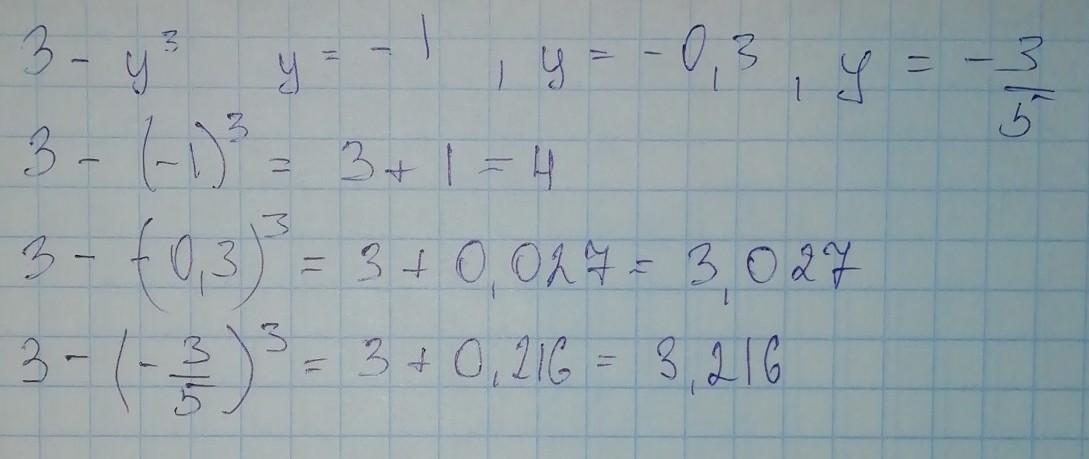 3 - y³ y = -1 , y = -0,3 , y = -3/5
3 - (-1)³ = 3 + 1 = 4
3 - (-0,3)³ = 3 + 0,027 = 3,027
3 - (-3/5)³ = 3 + 0,216 = 3,216